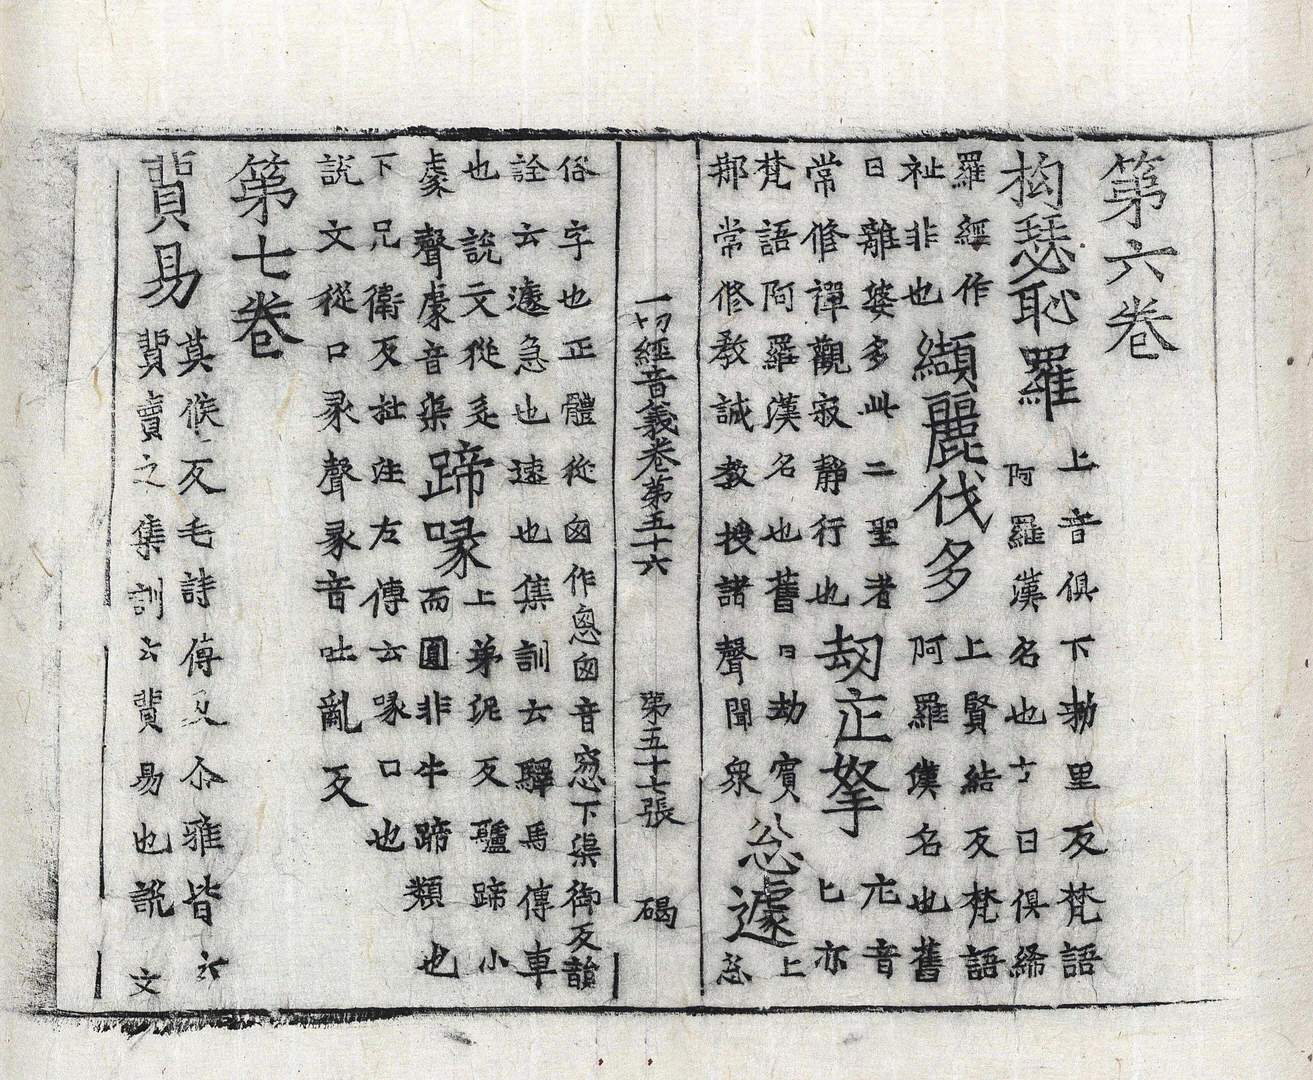 第六卷
拘瑟恥羅上音俱下勑里反梵語
阿羅漢名也古曰俱絺
羅經作
祉非也纈麗伐多上賢結反梵語
阿羅漢名也舊
曰離婆多此二聖者
常修禪觀寂靜行也劫庀拏庀音
匕亦
梵語阿羅漢名也舊曰劫賓
那常修教誡教授諸聲聞衆忩遽上
忩
一切經音義卷第五十六 第五十七張 碣
俗字也正體從囪作悤囪音窓下渠御反韻
詮云遽急也速也集訓云驛馬傳車
也說文從辵
豦聲豦音渠蹄喙上弟泥反驢蹄小
而圓非牛蹄類也
下兄衛反杜注左傳云喙口也
說文從口彖聲彖音吐亂反
第七卷
貿易莫候反毛詩傳及尒雅皆云
貿賣之集訓云貿易也說文